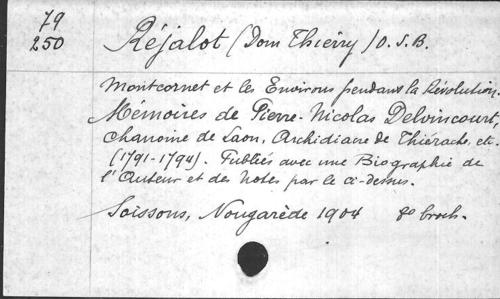 79
250
Réjalot (Dom Thierry) O.S.B.
Montcornet et les Environs pendant la Révolution.
Mémoires de Pierre-Nicolas Delvincourt,
Chanoine de Laon, Archidiacre de Thiérache, etc.
(1791-1794). Publiés avec une Biographie de
l'Auteur et des Notes par le ci-dessus.
Soissons, Nougarède 1904 8º broch.